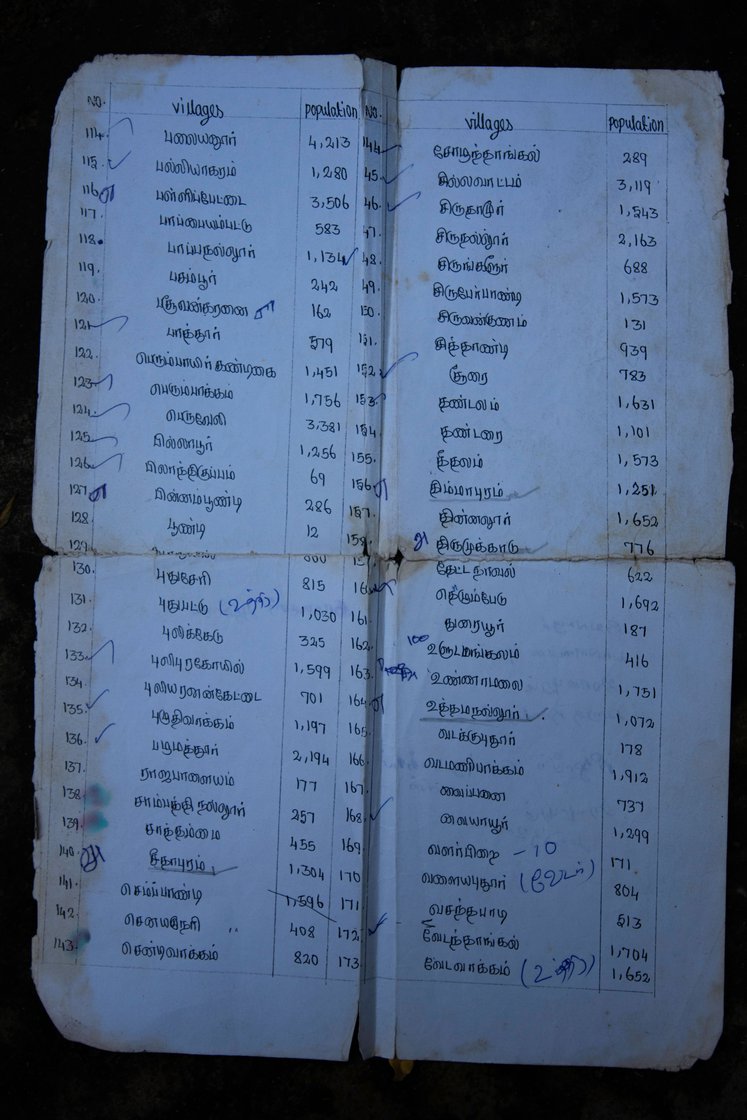 NO. villages population
114. பலையனூர் 4,213
115. பல்லியாகரம் 1,280
116. பள்ளிப்பேட்டை 3,506
117. பாப்பையம்பட்டு 583
118. பாப்பநல்லூர் 1,134
119. பசும்பூர் 242
120. பசுவன்கரனை 162
121. பாத்தூர் 579
122. பெரும்பாயிர் கண்டிகை 1,451
123. பெரும்பாக்கம் 1,756
124. பெருவேலி 3,381
125. பில்லாபூர் 1,256
126. பிலாந்திகுப்பம் 69
127. பின்னம்பூண்டி 286
128. பூண்டி 12
129.
130. புதுசேரி 815
131. புதுபட்டு (உத்தி) 1,030
132. புலிக்கேடு 325
133. புலிபுரகோயில் 1,599
134. புலியரணன்கோட்டை 701
135. புழுதிவாக்கம் 1,197
136. பழமத்தூர் 2,194
137. ராஜபாளையம் 177
138. சாம்பத்தி நல்லூர் 257
139. சாத்தம்மை 455
140. சீதாபுரம் 1,304
141. செம்ப்பூண்டி 1,596
142. செனயநேரி 408
143. செண்டிவாக்கம் 820
NO. villages population
144. சோழந்தாங்கல் 289
45. சில்லவாட்டம் 3,119
46. சிருதாமூர் 1,543
47. சிருநல்லூர் 2,163
48. சிருங்களூர் 688
49. சிருபேர்பாண்டி 1,573
150. சிருவன்குணம் 131
151. சித்தாண்டி 939
152. சூரை 783
153. தண்டலம் 1,631
154. தண்டரை 1,101
155. தீதலம் 1,573
156. திம்மாபுரம் 1,251
157. தின்னலூர் 1,652
158. திருமுக்காடு 776
தோட்டநாவல் 622
தெழும்பேடு 1,692
161. துரையூர் 187
162. உருடமங்கலம் 416
163. உண்ணாமலை 1,731
164. உத்தமநல்லூர் 1,072
165. வடக்குபுதூர் 178
166. வடமணிபாக்கம் 1,912
167. வைப்பணை 737
168. வையாயூர் 1,299
169. வளர்பிறை - 10 171
170. வளையபுதூர் (வேடர்) 804
171. வசந்தபாடி 513
172. வேடந்தாங்கல் 1,704
173. வேடவாக்கம் (உத்தி) 1,652